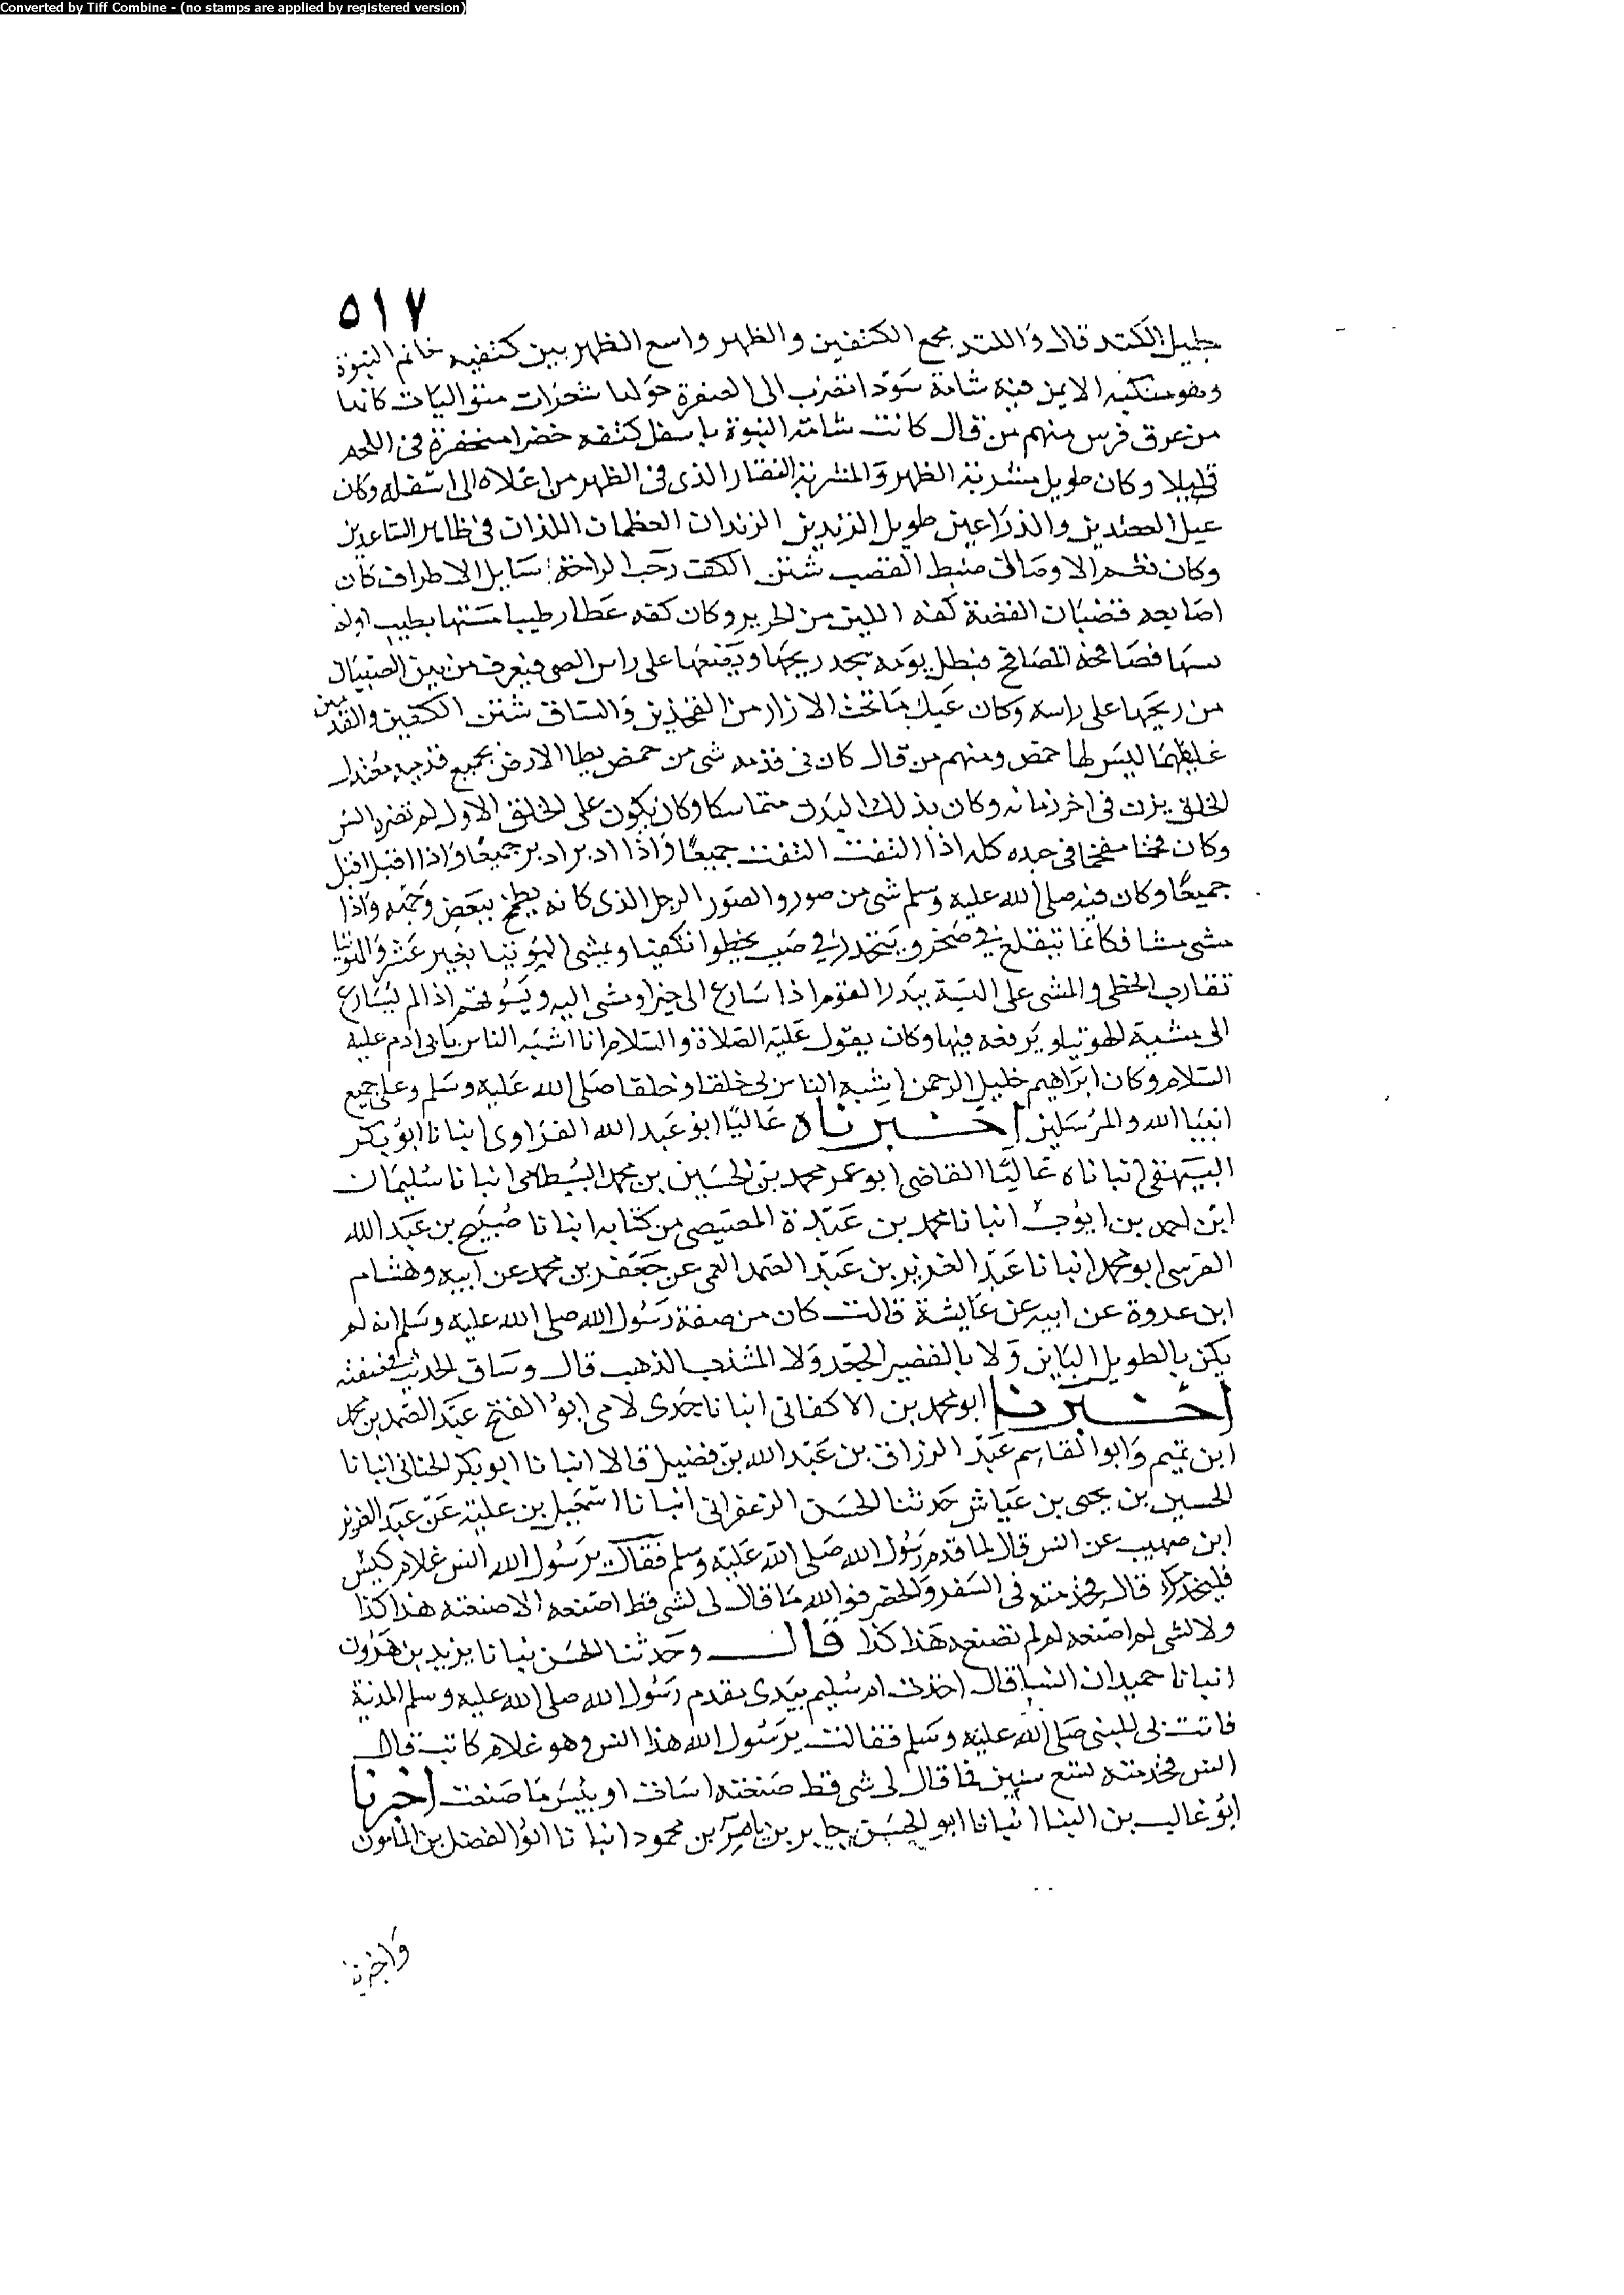 Converted by Tiff Combine - (no stamps are applied by registered version)
٥١٧
جليل الكتد قال والكتد مجمع الكتفين والظهر واسع الظهر بين كتفيه خاتم النبوة
وهو منكبه الايمن فيه شامة سودا تضرب الى الصفرة حولها شعرات متواليات كانها
من عرق فرس منهم من قال كانت شامته النبوة باسفل كتفه خضرا منحفرة في اللحم
قليلا وكان طويل مسربة الظهر والمسربة الفقار الذي في الظهر من اعلاه الى اسفله وكان
عبل العضدين والذراعين طويل الزندين الزندان العظمان اللذان في ظاهر الساعدين
وكان فخم الاوصال منبط القصب شثن الكف رحب الراحة سايل الاطراف كان
اصابعه قضبان الفضة كفه الين من الحرير وكان كفه عطار طيبا مسها بطيب اولم
يمسها فصافحه المصافح فيظل يومه يجد ريحها ويضعها على راس الصبي فيعرف من بين الصبيان
من ريحها على راسه وكان عبل ما تحت الازار من الفخذين والساق شثن الكفين والقدمين
غليظهما ليس لها خمص ومنهم من قال كان في قدمه شي من خمص يطا الارض بجميع قدميه معتدل
الخلق بدن في اخر زمانه وكان بذلك البدن متماسكا وكان يكون على الخلق الاول لم تضره السن
وكان فخما مفخما في جسده كله اذا التفت التفت جميعا واذا ادبر ادبر جميعا واذا اقبل اقبل
جميعا وكان فيه صلى الله عليه وسلم شي من صور والصور الرجل الذي كانه يلمح ببعض وجهه واذا
مشى مشا فكانما يتقلع في صخر وينحدر في صبب يخطوا تكفيا ويمشي الهوينا بغير عثر والهوينا
تقارب الخطى والمشى على الهينة يبدر القوم اذا سارع الى خير او مشى اليه ويسوقهم اذا لم يسارع
الى مشية الهوينا ويرفعه فيها وكان يقول عليه الصلاة والسلام انا اشبه الناس بابي ادم عليه
السلام وكان ابراهيم خليل الرحمن اشبه الناس بي خلقا وخلقا صلى الله عليه وسلم وعلى جميع
انبيا الله والمرسلين اخبرناه عاليا ابو عبد الله الفراوى انبانا ابو بكر
البيهقى انباناه عاليا القاضى ابو عمر محمد بن الحسين بن محمد البسطامى انبانا سليمان
ابن احمد بن ايوب انبانا محمد بن عبدة المصيصي من كتابه انبانا صبيح بن عبد الله
القرسى ابو محمد انبانا عبد العزيز بن عبد الصمد العمى عن جعفر بن محمد عن ابيه وهشام
ابن عروة عن ابيه عن عايشة قالت كان من صفة رسول الله صلى الله عليه وسلم انه لم
يكن بالطويل الباين ولا بالقصير الجعد ولا المشذب الذهب قال وساق الحديث في صفته
اخبرنا ابو محمد بن الاكفانى انبانا جدى لامى ابو الفتح عبد الصمد بن محمد
ابن تميم وابو القاسم عبد الرزاق بن عبد الله بن فضيل قالا انبانا ابو بكر الحنائى انبانا
الحسين بن يحيى بن عياش حدثنا الحسن الزعفرانى انبانا اسمعيل بن علية عن عبد العزيز
ابن صهيب عن انس قال لما قدم رسول الله صلى الله عليه وسلم فقال يرسول الله انس غلام كيس
فليخدمك قال فخدمته في السفر والحضر فوالله ما قال لى لشى قط اصنعه الا صنعته هذا كذا
ولا لشى لم اصنعه لم لم تصنعه هذا كذا قال وحدثنا الحسن نبانا يزيد بن هرون
انبانا حميد ان انسا قال اخذت ام سليم بيدى بقدم رسول الله صلى الله عليه وسلم المدنية
فاتت بى للنبى صلى الله عليه وسلم فقالت يرسول الله هذا انس وهو غلام كاتب قال
انس فخدمته تسع سنين فما قال لى شى قط صنعته اسات او بئيس ما صنعت اخبرنا
ابو غالب بن البنا انبانا ابو الحسن جابر بن ياسر بن محمود انبانا ابو الفضل بن المامون
واخبرنا